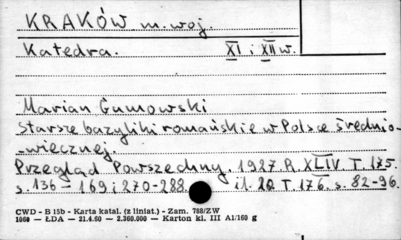 KRAKÓW m. woj.
Katedra. XI i XII w.
Marian Gumowski
Starsze bazyliki romańskie w Polsce średnio-
-wiecznej.
Przegląd Powszechny. 1927 R. XLIV T. 175.
s. 136 - 169 i 270-288. il. 20 T. 176. s. 82-96.
CWD - B 15b - Karta katal. (z liniat.) - Zam. 788/ZW
1060 — ŁDA — 21.4.60 — 2.360.000 — Karton kl. III A1/160 g